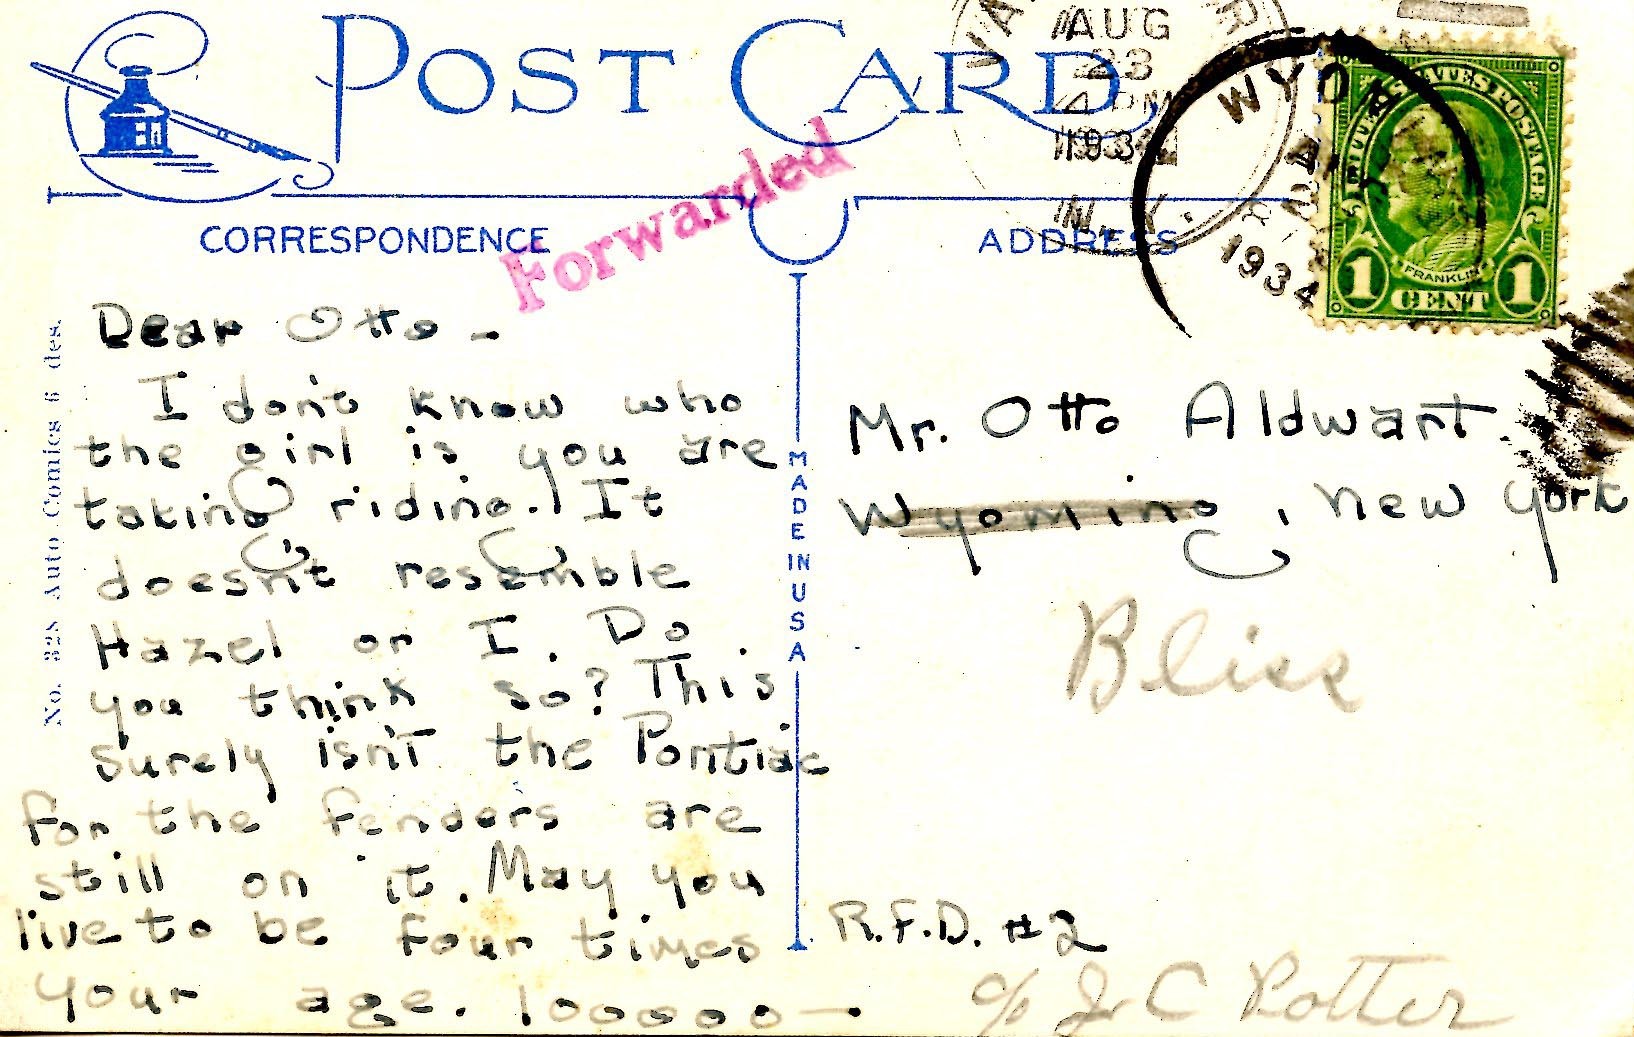 POST CARD
AUG
23
4 PM
1934
N.Y.
WYO
1934
UNITED STATES POSTAGE
FRANKLIN
1 CENT 1
Forwarded
CORRESPONDENCE
ADDRESS
Dear Otto -
I don't know who
the girl is you are
taking riding. It
doesn't resemble
Hazel or I. Do
you think so? This
surely isn't the Pontiac
for the fenders are
still on it. May you
live to be four times
your age. 100000 —
No. 328 Auto Comics 6 des.
MADE IN USA
Mr. Otto Aldwart.
Wyoming, New York
Bliss
R.F.D. #2
c/o J. C Potter